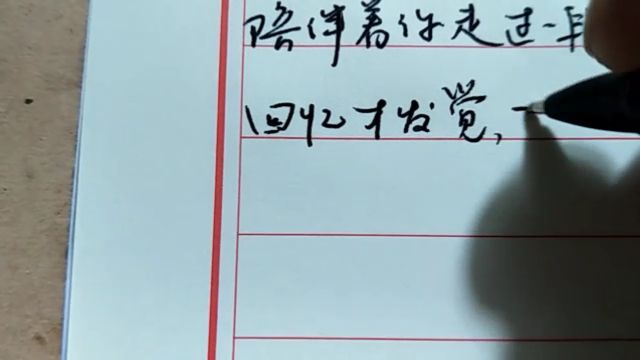 陪伴着你走过一
回忆才发觉，